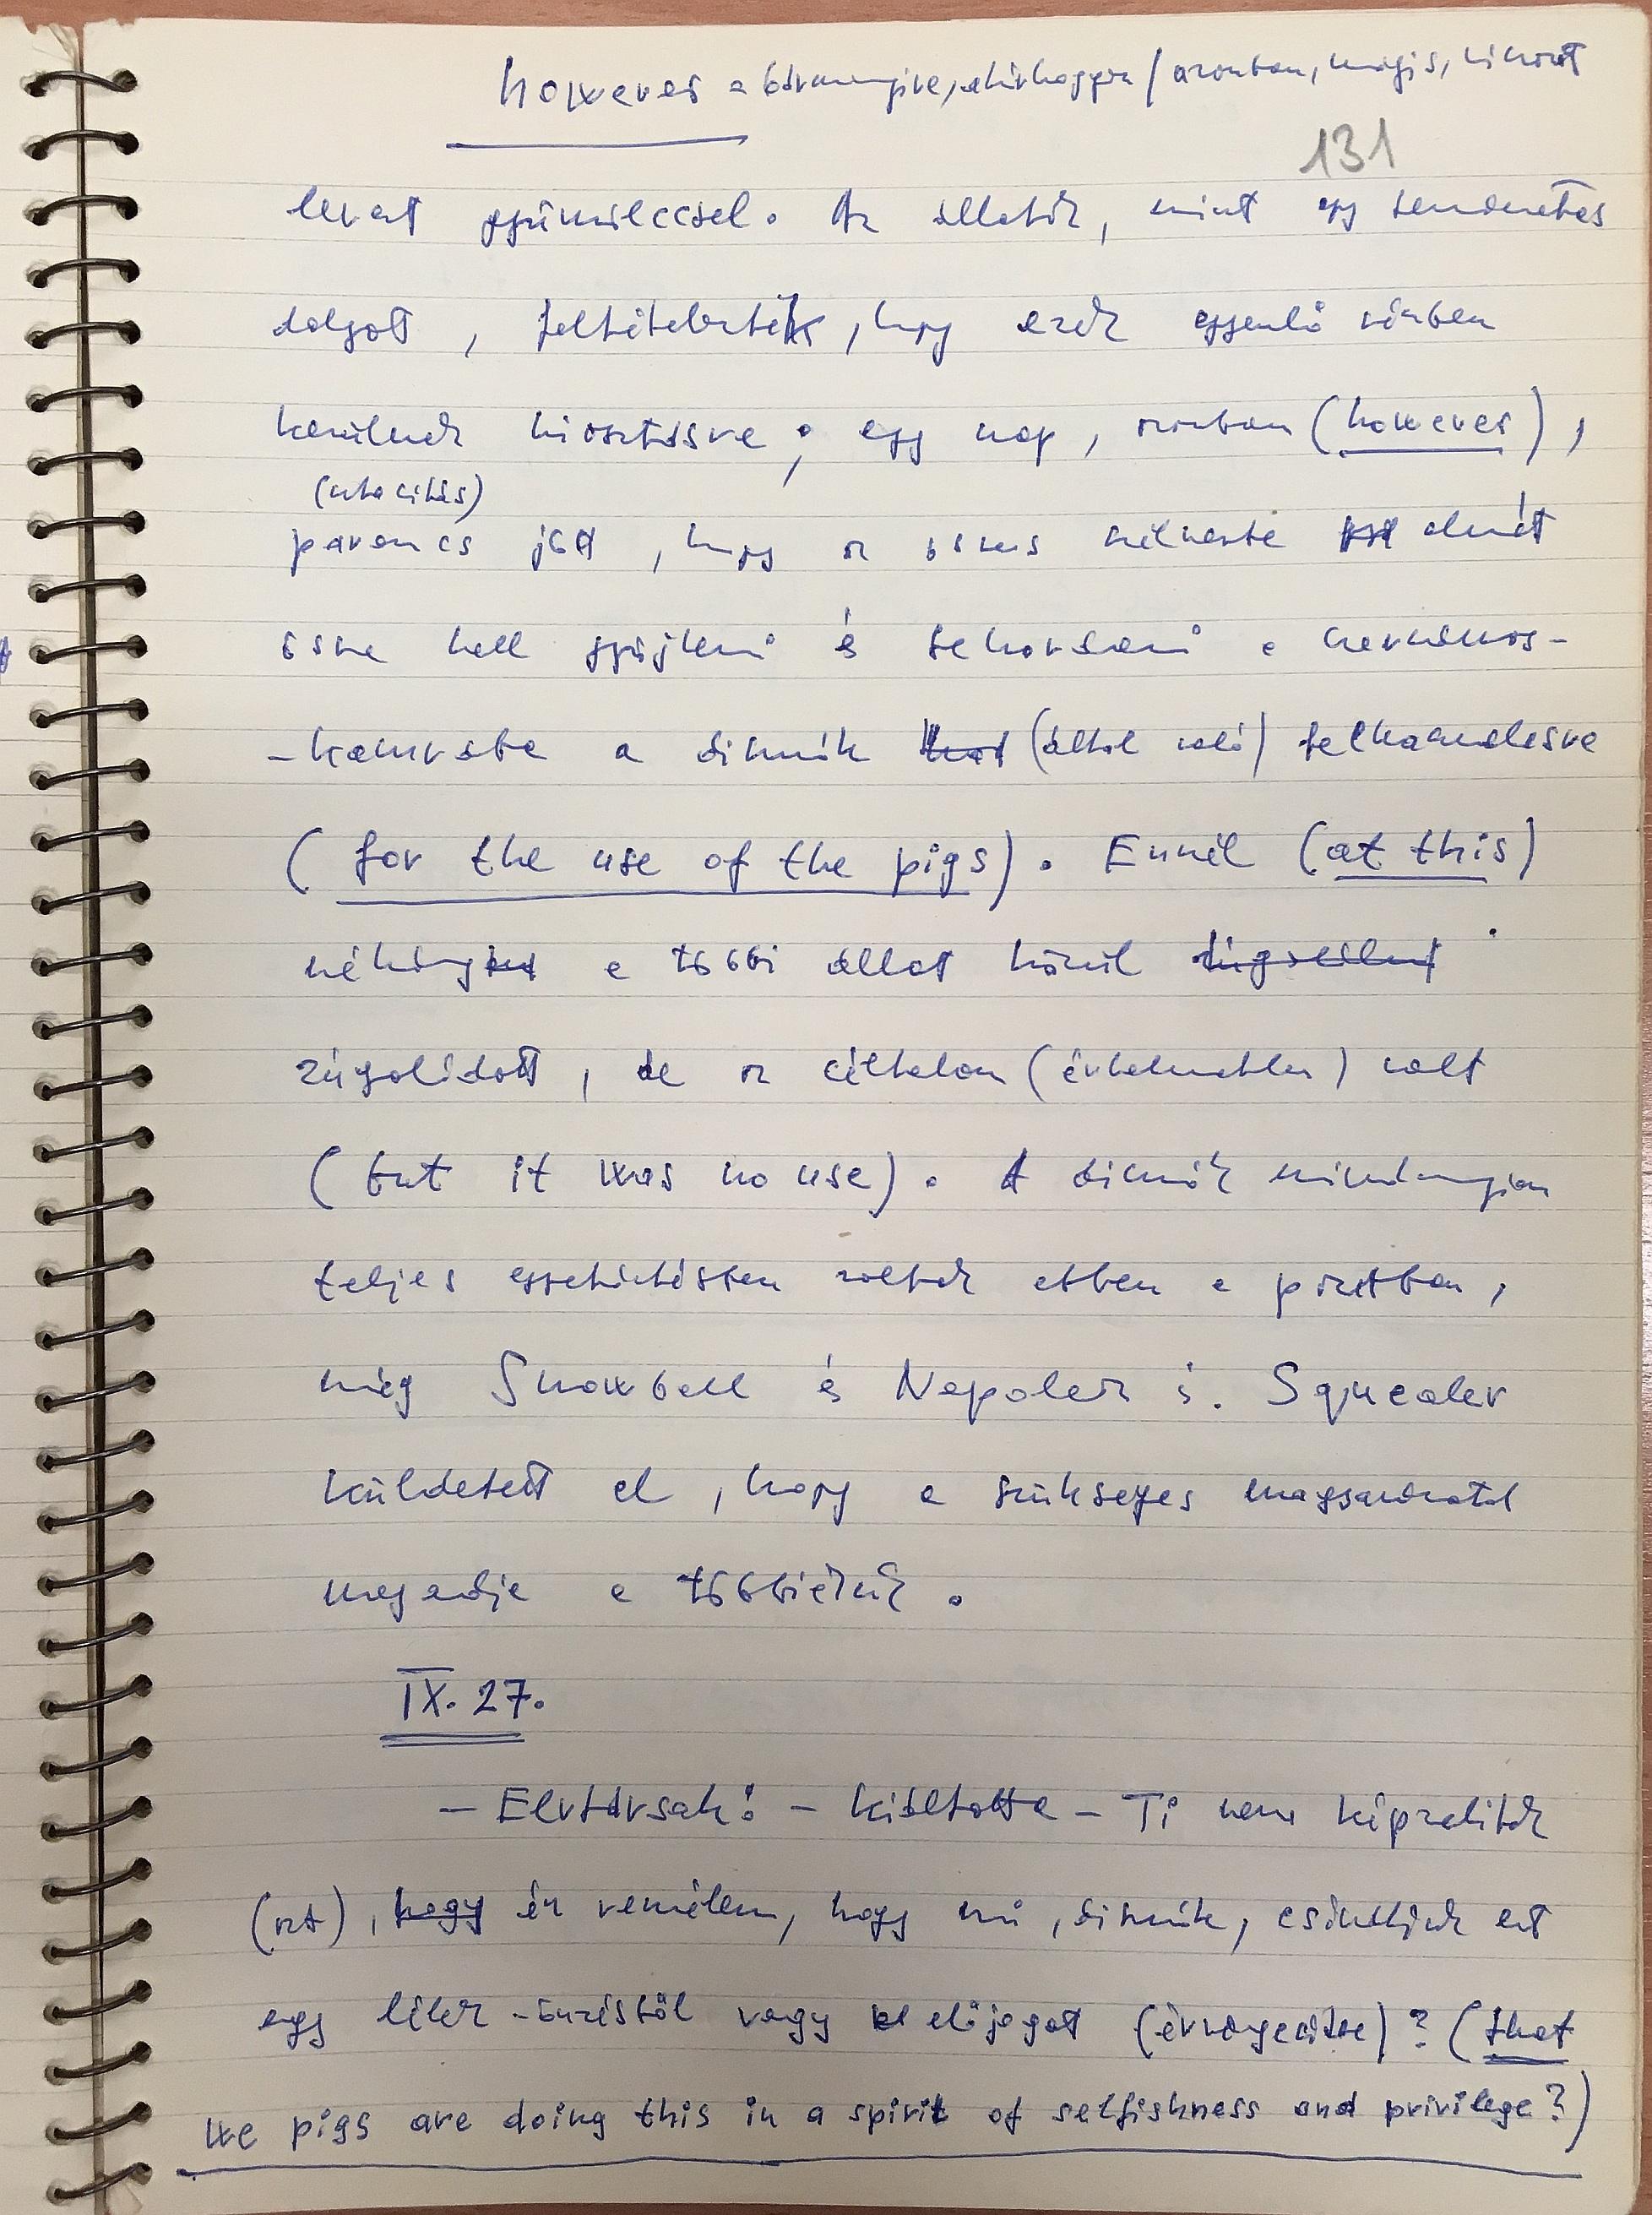 however = bármennyire, akárhogyan / azonban, mégis, viszont
131
levert gyümölccsel. Az állatok, mint egy természetes
dolgot, feltételezték, hogy ezek egyenlő részben
kerülnek kiosztásra; egy nap, azonban (however),
(utasítás)
parancs jött, hogy az összes szélverte almát
össze kell gyűjteni és behordani a szerszámos-
-kamrába a disznók (által való) felhasználásra
(for the use of the pigs). Ennél (at this)
néhány a többi állat közül
zúgolódott, de az céltalan (értelmetlen) volt
(but it was no use). A disznók mindannyian
teljes egyetértésben voltak ebben a pontban,
még Snowball és Napoleon is. Squealer
küldetett el, hogy a szükséges magyarázatot
megadja a többieknek.
IX. 27.
- Elvtársak! - kiáltotta - Ti nem képzelitek
(azt), hogy én remélem, hogy mi, disznók, csináljuk ezt
egy lélek -önzéstől vagy előjogot (érvényesítve)? (that
we pigs are doing this in a spirit of selfishness and privilege?)